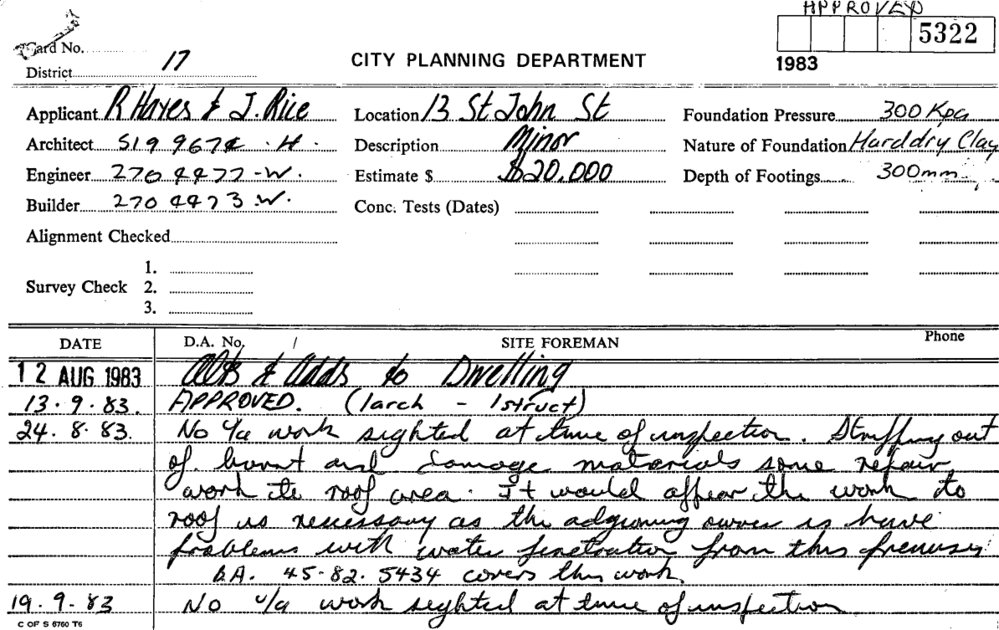 APPROVED
5322
1983
Card No.
District 17
CITY PLANNING DEPARTMENT
Applicant R Hayes & J. Rice
Location 13 St John St
Foundation Pressure 300 Kpa
Architect 519 9674 . H .
Description Minor
Nature of Foundation Hard dry Clay
Engineer 270 4477 - W.
Estimate $ $20,000
Depth of Footings 300mm
Builder 270 4473 . W.
Conc. Tests (Dates)
Alignment Checked
Survey Check
1.
2.
3.
DATE D.A. No. / SITE FOREMAN Phone
12 AUG 1983 Alts & Adds to Dwelling
13.9.83. APPROVED. (1 arch - 1 struct)
24.8.83. No u/a work sighted at time of inspection. Stripping out
of burnt and damage materials some repair
work to roof area. It would appear the work to
roof is necessary as the adjoining owner is have
problems with water penetration from this premises
B.A. 45.82.5434 covers this work.
19.9.83 No u/a work sighted at time of inspection
C OF S 6760 T6